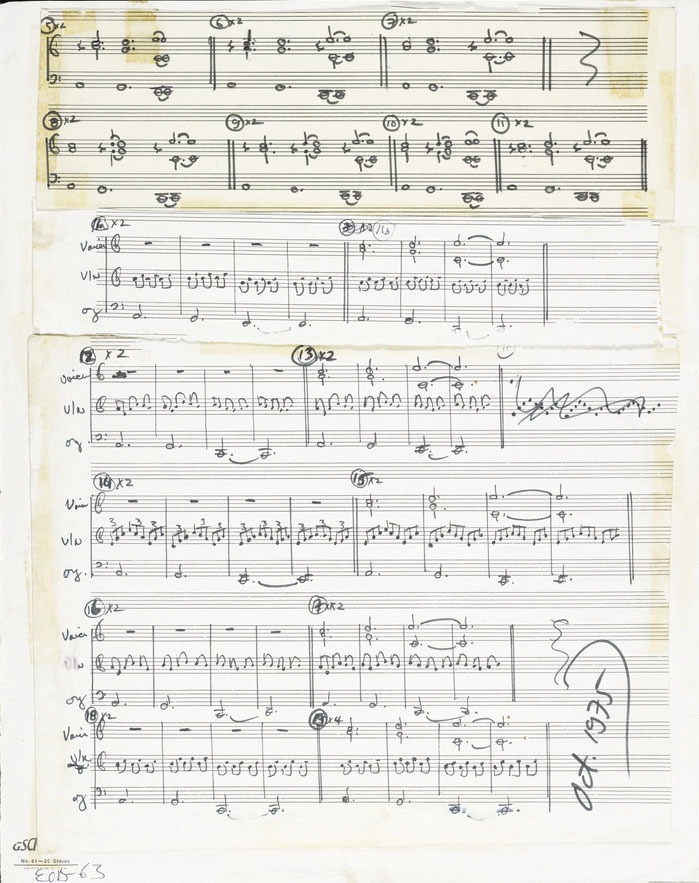 5 x2 6 x2 7 x2
8 x2 9 x2 10 x2 11 x2
x2 x2 11b
Voices
Vln
org.
12 x2 13 x2
Voice
Vln
org.
14 x2 15 x2
Voice
3 3 3 3 3 3 3 3
Vln
org.
16 x2 17 x2
Voice
Vln
org.
18 x2 19 x4
Voice
Vln
org
Oct. 1975
GSCI
No. 61—26 Staves
EOB-63